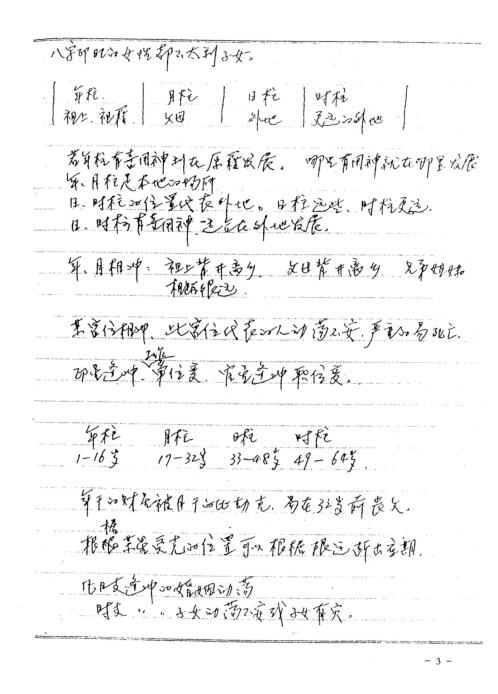 八字印旺的女性都不太利子女。
年柱 月柱 日柱 时柱
祖上、祖籍 父母 外地 更远的外地
若年柱有喜用神利在原籍发展。哪里有用神就在哪里发展
年、月柱是本地的场所
日、时柱的位置代表外地。日柱近些、时柱更远.
日、时柱有喜用神,适合在外地发展。
年、月相冲:祖上背井离乡、父母背井离乡 兄弟姐妹
相隔很远.
某宫位相冲、此宫位代表的人动荡不安,严重的易死亡.
工作
印星逢冲、单位变.官星逢冲职位变。
年柱 月柱 日柱 时柱
1-16岁 17-32岁 33-48岁 49-64岁
年干的财星被月干的比劫克.易在32岁前丧父.
据
根根某宫受克的位置可以根据限运断出应期.
凡日支逢冲的婚姻动荡
时支〃〃子女动荡不安或子女有灾。
- 3 -